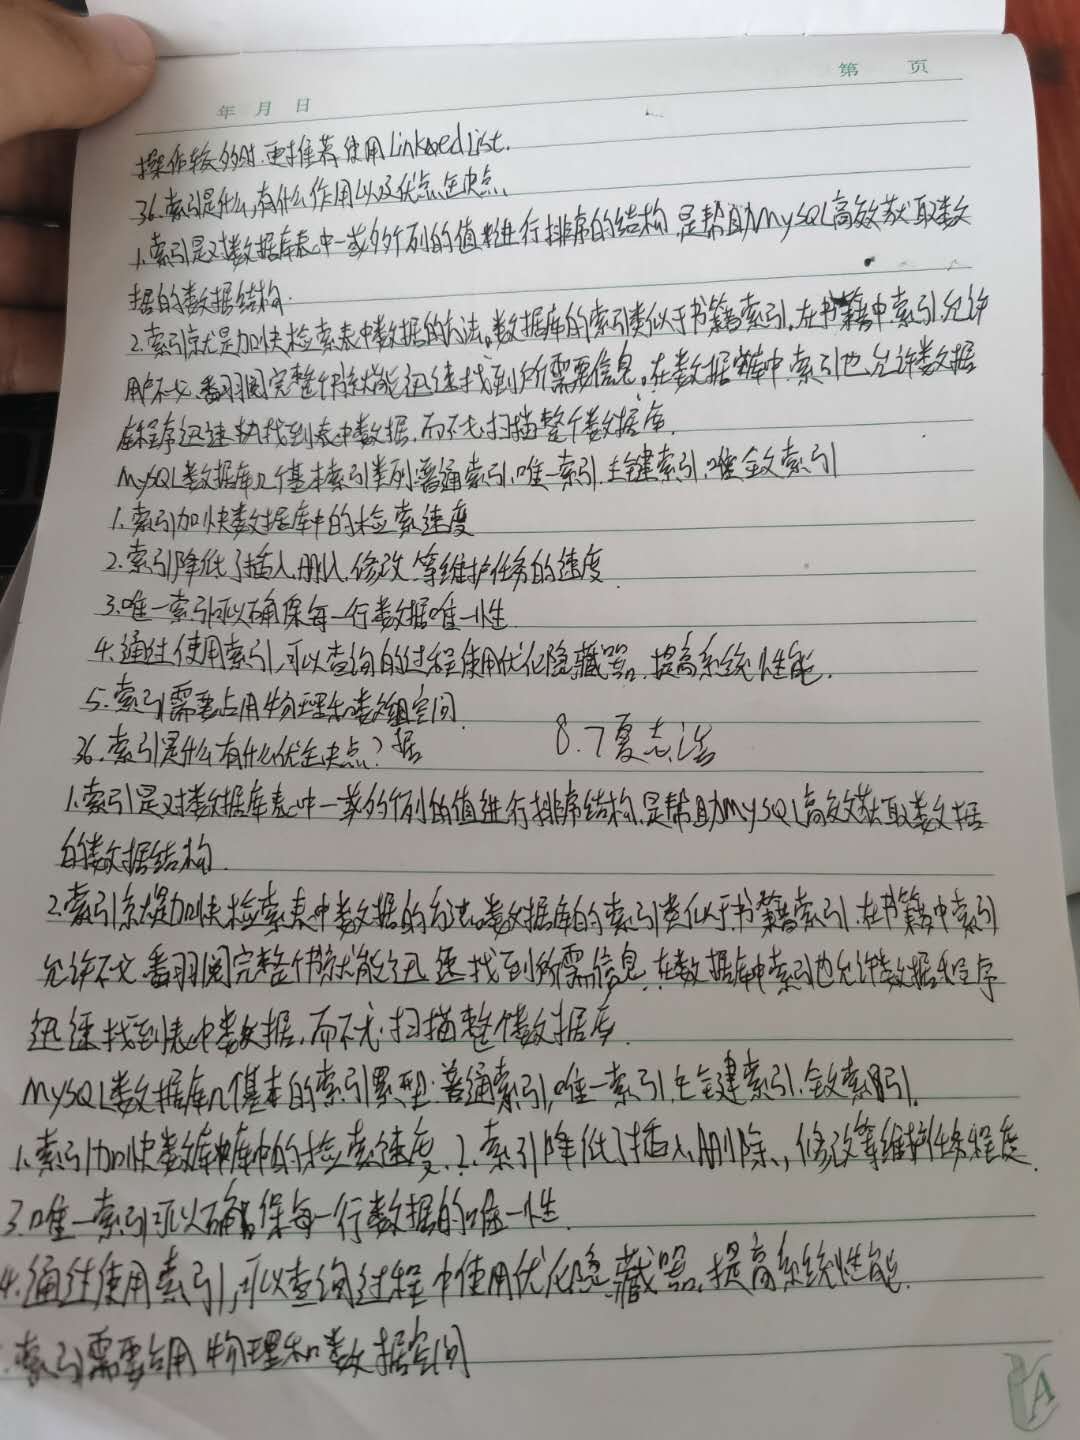 第 页
年 月 日
操作较多时,更推荐使用LinkedList.
36.索引是什么,有什么作用以及优点缺点、
1.索引是对数据库表中一或多个列的值进行排序的结构,是帮助MySQL高效获取数
据的数据结构.
2.索引就是加快检索表中数据的方法。数据库的索引类似于书籍索引,在书籍中,索引允许
用户不必翻阅完整个书就能迅速找到所需要信息,在数据库中,索引也允许数据
库程序迅速找到表中数据,而不必扫描整个数据库.
MySQL数据库几个基本索引类列:普通索引,唯一索引.主键索引,唯全文索引
1.索引加快数据库中的检索速度
2.索引降低了插入.删入.修改等维护任务的速度
3.唯一索引可以确保每一行数据唯一性
4.通过使用索引,可以查询的过程使用优化隐藏器,提高系统性能.
5.索引需要占用物理和数据空间.
36.索引是什么有什么优缺点? 8.7夏志浩
1.索引是对数据库表中一或多个列的值进行排序结构,是帮助MySQL高效获取数据
的数据结构.
2.索引就是加快检索表中数据的方法。数据库的索引类似于书籍索引.在书籍中索引
允许不文翻阅完整个书就能迅速找到所需信息.在数据库中索引也允许数据程序
迅速找到表中数据,而不必扫描整个数据库.
MySQL数据库几个基本的索引累型:普通索引,唯一索引,主键索引.全文索引.
1.索引加快数据库中的检索速度.2.索引降低了插入,删除,修改等维护任务程度.
3.唯一索引可以确保每一行数据的唯一性.
4.通过使用索引,可以查询过程中使用优化隐藏器,提高系统性能.
.索引需要占用物理和数据空间